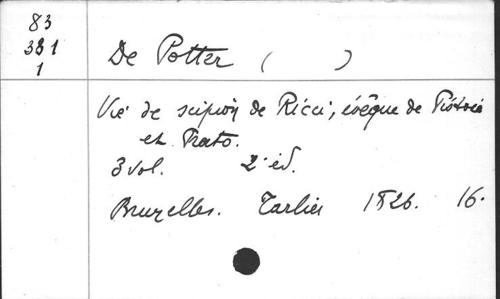 83
381
1
De Potter ( )
Vie de scipion de Ricci, évêque de Pistoie
et Prato.
3 vol. 2e éd.
Bruxelles. Tarlier 1826. 16.